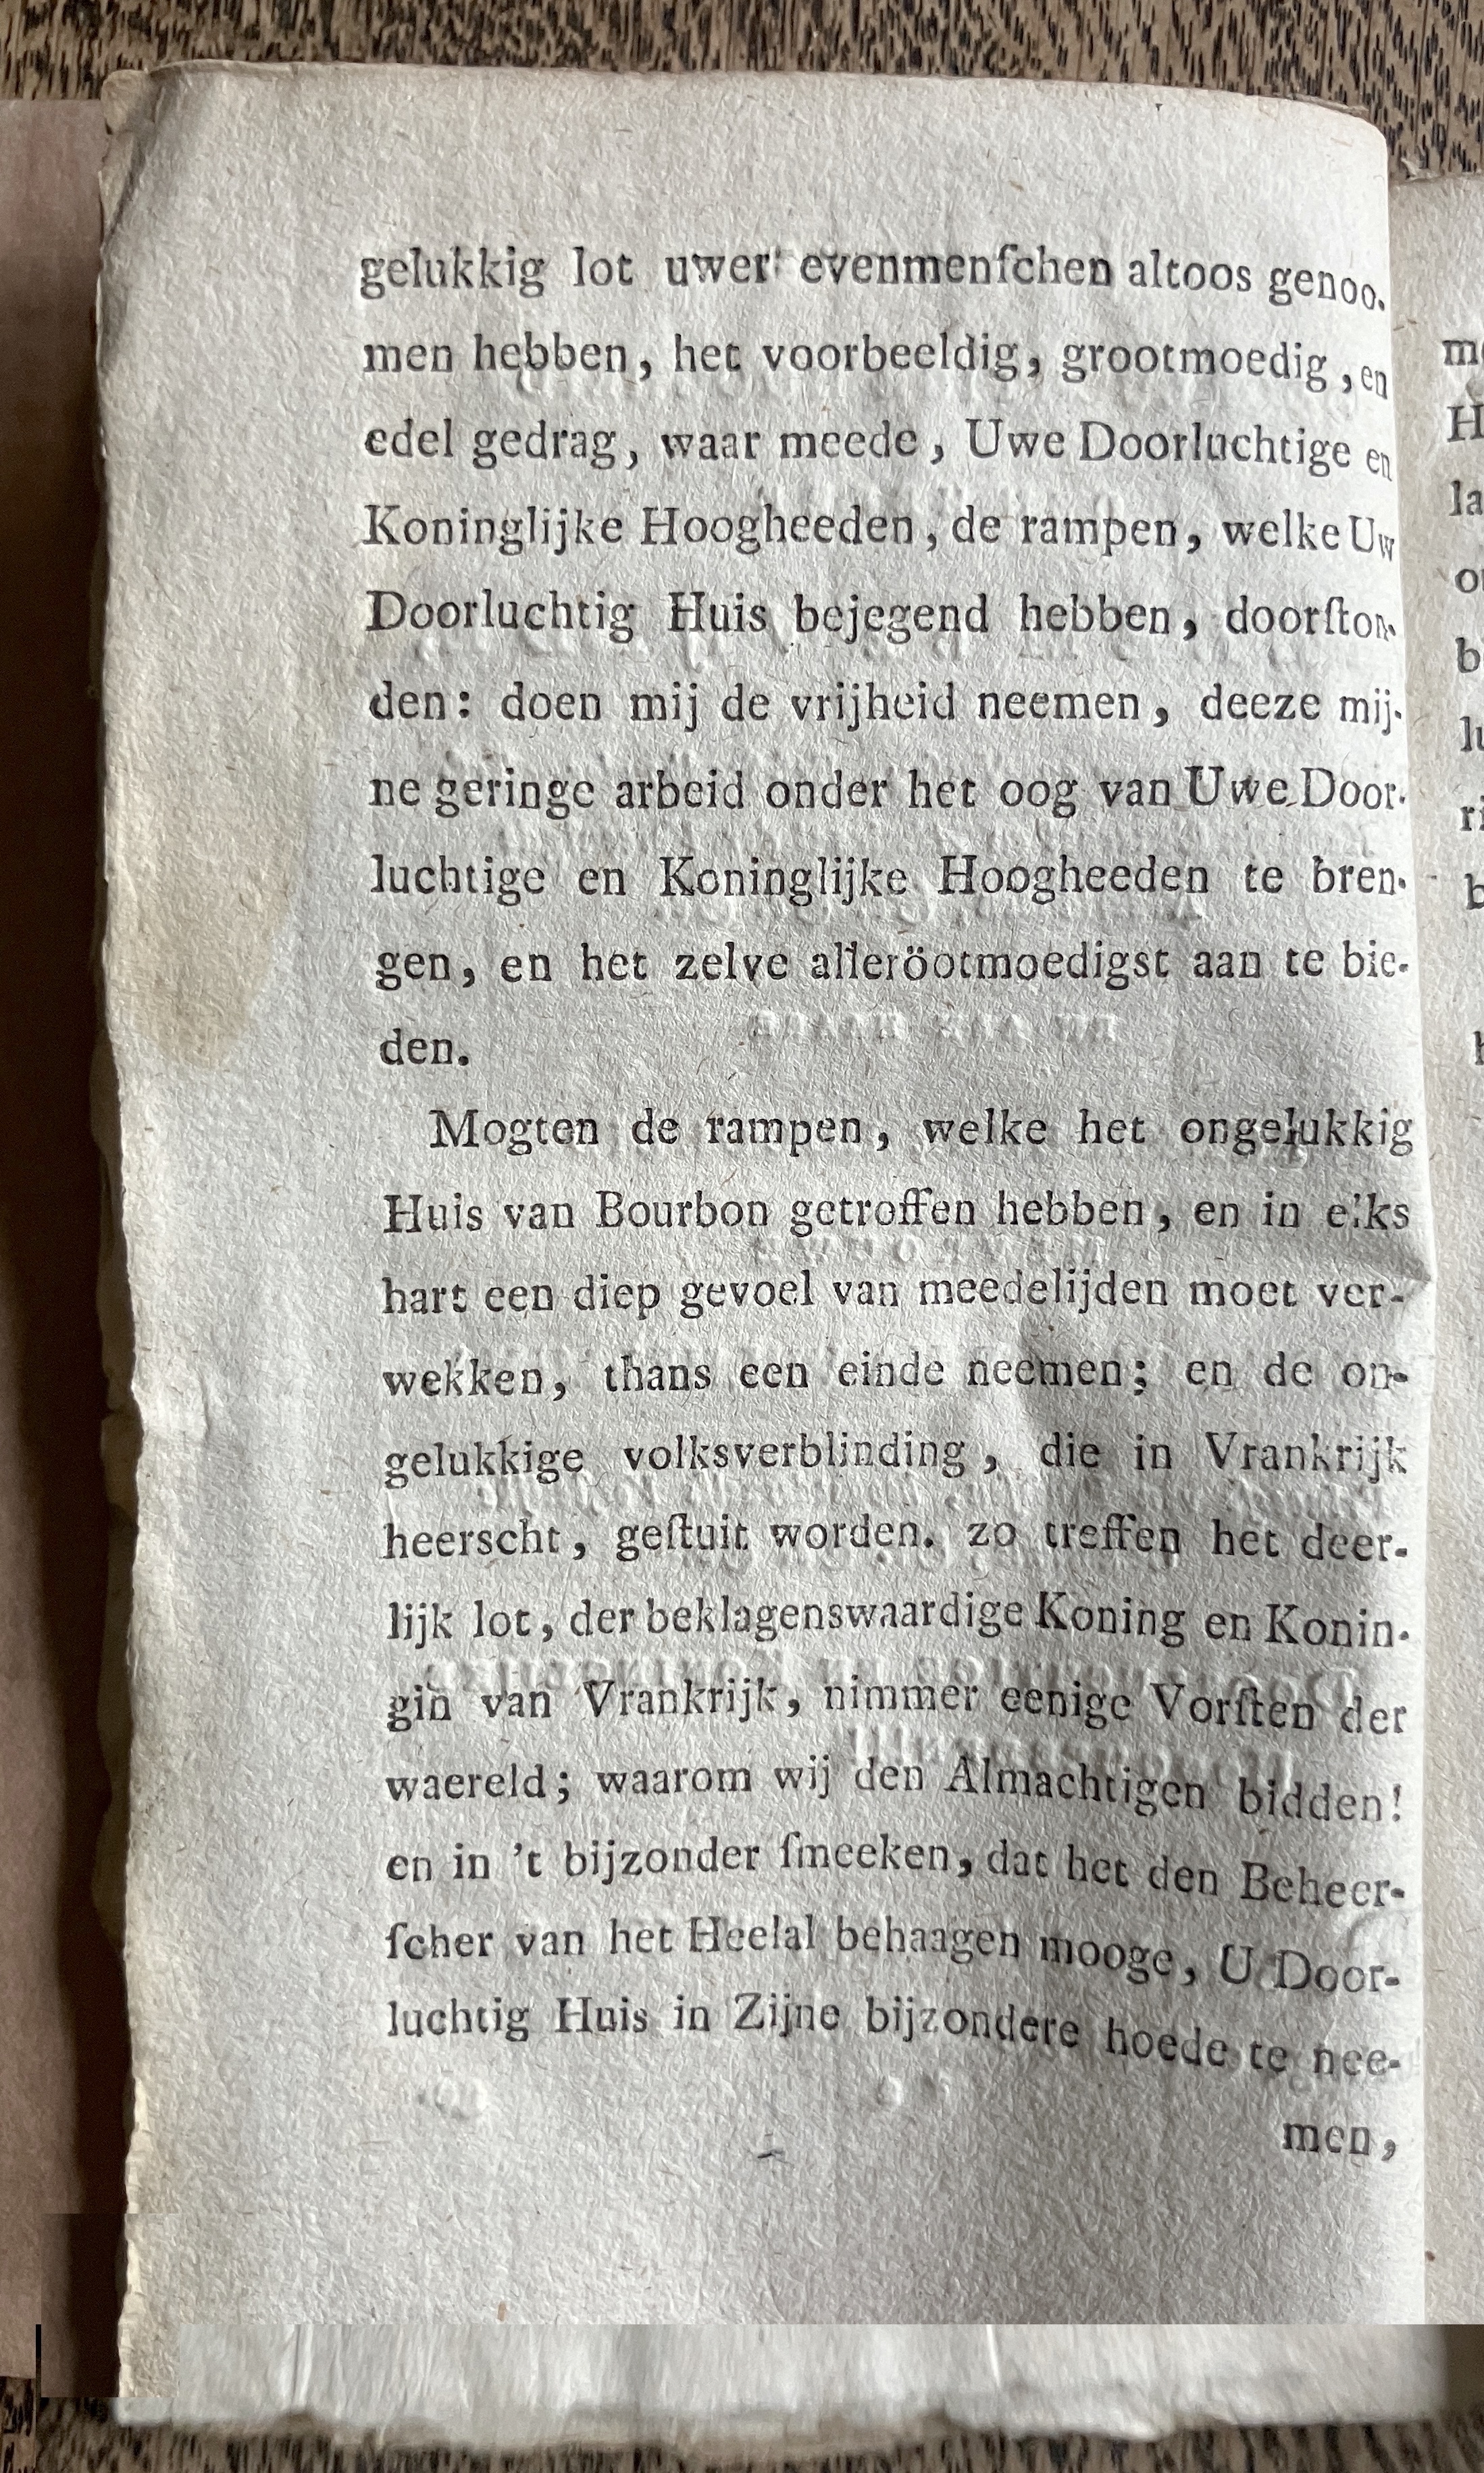 gelukkig lot uwer evenmenſchen altoos genoo-
men hebben, het voorbeeldig, grootmoedig, en
edel gedrag, waar meede, Uwe Doorluchtige en
Koninglijke Hoogheeden, de rampen, welke Uw
Doorluchtig Huis bejegend hebben, doorſton-
den: doen mij de vrijheid neemen, deeze mij-
ne geringe arbeid onder het oog van Uwe Door-
luchtige en Koninglijke Hoogheeden te bren-
gen, en het zelve alleröotmoedigst aan te bie-
den.
Mogten de rampen, welke het ongelukkig
Huis van Bourbon getroffen hebben, en in elks
hart een diep gevoel van meedelijden moet ver-
wekken, thans een einde neemen; en de on-
gelukkige volksverblinding, die in Vrankrijk
heerscht, geſtuit worden. zo treffen het deer-
lijk lot, der beklagenswaardige Koning en Konin-
gin van Vrankrijk, nimmer eenige Vorſten der
waereld; waarom wij den Almachtigen bidden!
en in 't bijzonder ſmeeken, dat het den Beheer-
ſcher van het Heelal behaagen mooge, U Door-
luchtig Huis in Zijne bijzondere hoede te nee-
men,
m
H
la
o
b
lu
ri
b
h